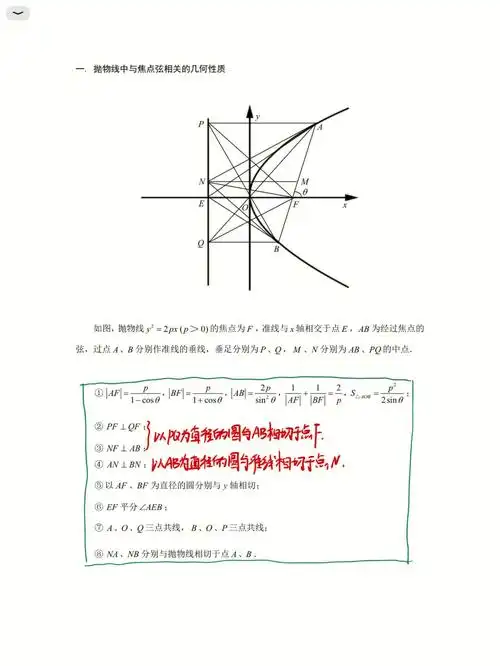 一. 抛物线中与焦点弦相关的几何性质
y
P
A
N
M
θ
E
O
F
x
Q
B
如图, 抛物线 y² = 2px (p > 0) 的焦点为 F, 准线与 x 轴相交于点 E, AB 为经过焦点的
弦, 过点 A、B 分别作准线的垂线, 垂足分别为 P、Q, M、N 分别为 AB、PQ 的中点.
① |AF| = p/(1−cosθ), |BF| = p/(1+cosθ), |AB| = 2p/sin²θ, 1/|AF| + 1/|BF| = 2/p, S△AOB = p²/(2sinθ);
② PF ⊥ QF;
③ NF ⊥ AB;
} 以PQ为直径的圆与AB相切于点F.
④ AN ⊥ BN; 以AB为直径的圆与准线相切于点N.
⑤ 以 AF、BF 为直径的圆分别与 y 轴相切;
⑥ EF 平分 ∠AEB;
⑦ A、O、Q 三点共线, B、O、P 三点共线;
⑧ NA、NB 分别与抛物线相切于点 A、B.